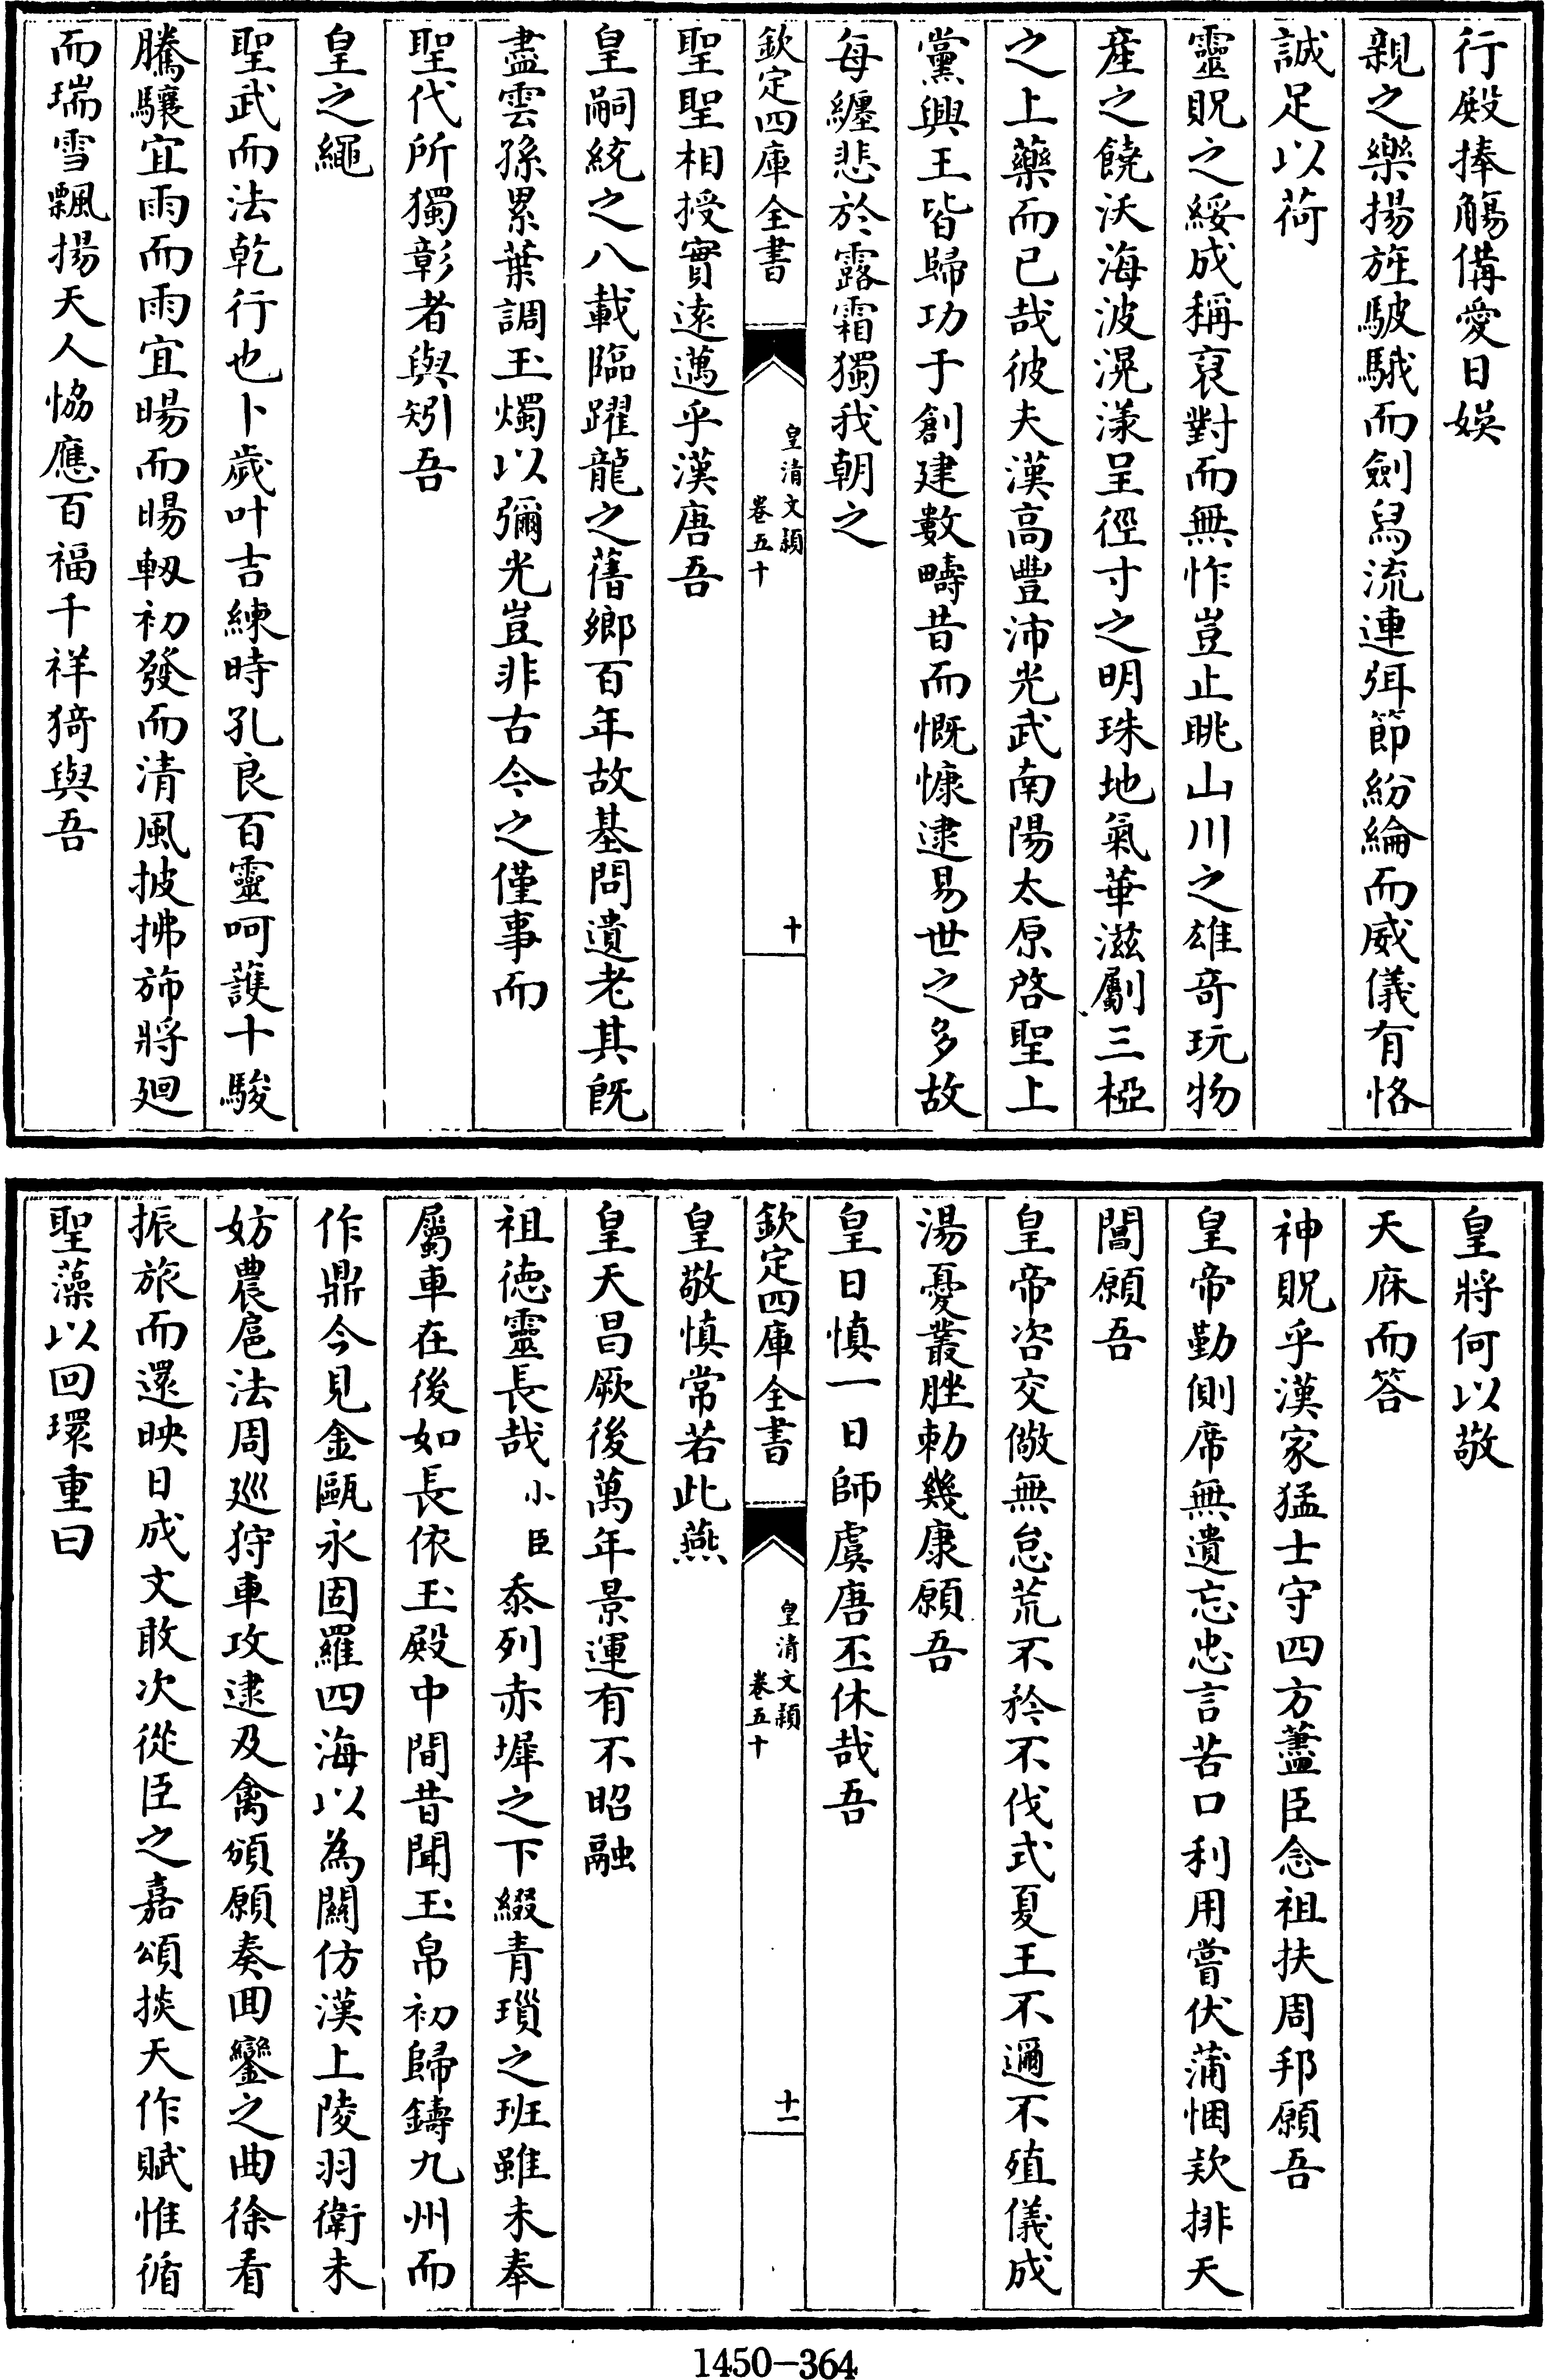 行殿捧觴備愛日娛
親之樂揚旌駊騀而劍舄流連弭節紛綸而威儀有恪
誠足以荷
靈貺之綏成稱裒對而無怍豈止眺山川之雄奇玩物
產之饒沃海波滉漾呈徑寸之明珠地氣華滋劚三椏
之上藥而已哉彼夫漢高豐沛光武南陽太原啓聖上
黨興王皆歸功于創建數疇昔而慨慷逮易世之多故
每纏悲於露霜獨我朝之
欽定四庫全書
皇清文穎
卷五十
十
聖聖相授實遠邁乎漢唐吾
皇嗣統之八載臨躍龍之舊鄉百年故基問遺老其既
盡雲孫累葉調玉燭以彌光豈非古今之僅事而
聖代所獨彰者與矧吾
皇之繩
聖武而法乾行也卜歲叶吉練時孔良百靈呵護十駿
騰驤宜雨而雨宜暘而暘軔初發而清風披拂斾將廻
而瑞雪飄揚天人恊應百福千祥猗與吾
皇將何以敬
天庥而答
神貺乎漢家猛士守四方藎臣念祖扶周邦願吾
皇帝勤側席無遺忘忠言苦口利用嘗伏蒲悃欵排天
閶願吾
皇帝咨交儆無怠荒不矜不伐式夏王不邇不殖儀成
湯憂叢脞勅幾康願吾
皇日慎一日師虞唐丕休哉吾
欽定四庫全書
皇清文穎
卷五十
十一
皇敬慎常若此燕
皇天昌厥後萬年景運有不昭融
祖德靈長哉小臣忝列赤墀之下綴青瑣之班雖未奉
屬車在後如長依玉殿中間昔聞玉帛初歸鑄九州而
作鼎今見金甌永固羅四海以為關仿漢上陵羽衛未
妨農扈法周廵狩車攻逮及禽頒願奏回鑾之曲徐看
振旅而還映日成文敢次從臣之嘉頌掞天作賦惟循
聖藻以回環重曰
1450-364